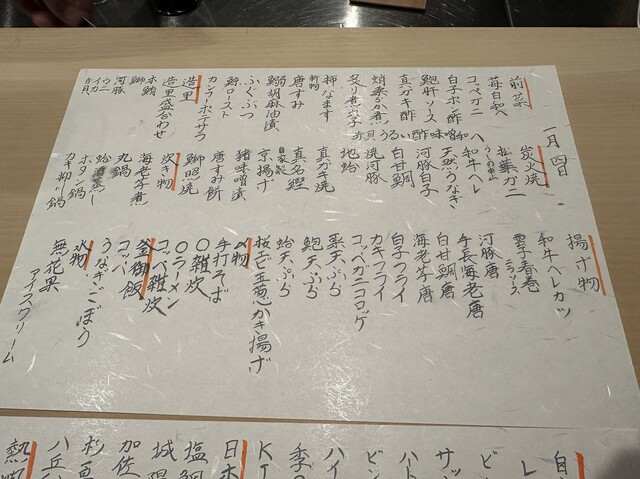 一月四日
前菜
苺白和へ
コッペガニ
白子ポン酢
鮑肝ソース
真ガキ酢
蛸柔らか煮
炙り煮穴子
赤貝うるい酢味噌和へ
柿なます
新物
唐すみ
鰯胡麻油漬
ふぐぶつ
鯨ロースト
カンフラーポテサラ
造里
造里盛合わせ
本鮪
鰤
河豚
イカ
ウニ
赤貝
炭火焼
松葉ガニ
和牛ヘレ
天然うなぎ
河豚白子
白甘鯛
焼河豚
地蛤
真ガキ焼
真名鰹
自家製
京揚げ
猪味噌漬
唐すみ餅
鰤照焼
炊き物
海老芋煮
丸鍋
ホタン鍋
揚げ物
和牛ヘレカツ
雲子春巻
ニラソース
河豚唐
手長海老唐
白甘鯛唐
海老芋唐
白子フライ
カキフライ
コッペガニコロッケ
粟天ぷら
鮑天ぷら
蛤天ぷら
桜えび玉葱かき揚げ
〆物
手打そば
〇雑炊
〇ラーメン
コッペ雑炊
釜御飯
コッパ
うなぎごぼう
水物
無花果
アイスクリーム